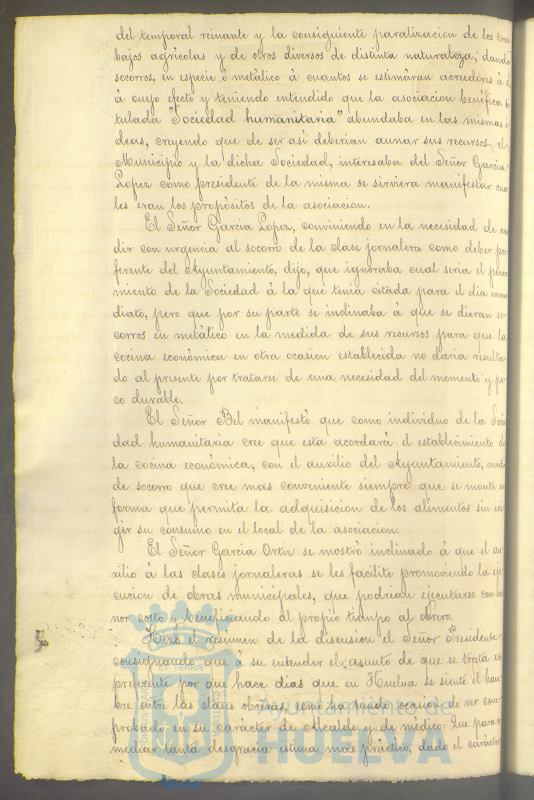 del temporal reinante y la consiguiente paralizacion de los tra-
bajos agrícolas y de otros diversos de distinta naturaleza, dando
socorros, en especie ó metálico á cuantos se estimaran acreedores á
á cuyo efecto y teniendo entendido que la asociacion benéfica ti-
tulada "Sociedad humanitaria" abundaba en las mismas i-
deas, creyendo que de ser así deberian aunar sus recursos el
Municipio y la dicha Sociedad, interesaba del Señor Garcia
Lopez como presidente de la misma se sirviera manifestar cua-
les eran los propósitos de la asociacion.
El Señor Garcia Lopez, conviniendo en la necesidad de acu-
dir con urgencia al socorro de la clase jornalera como deber pre-
ferente del Ayuntamiento, dijo, que ignoraba cual seria el pensa-
miento de la Sociedad á la que tenia citada para el dia inme-
diato, pero que por su parte se inclinaba á que se dieran so-
corros en metálico en la medida de sus recursos para que la
cocina económica en otra ocasion establecida no daria resulta-
do al presente por tratarse de una necesidad del momento y po-
co durable.
El Señor Bel manifestó que como individuo de la Socie-
dad humanitaria cree que esta acordará el establecimiento de
la cocina económica, con el auxilio del Ayuntamiento, medio
de socorro que cree mas conveniente siempre que se monte en
forma que permita la adquisicion de los alimentos sin exi-
gir su consumo en el local de la asociacion.
El Señor Garcia Ortiz se mostró inclinado á que el au-
xilio á las clases jornaleras se les facilite promoviendo la eje-
cucion de obras municipales, que podrian ejecutarse con me-
nor costo y beneficiando al propio tiempo al obrero.
Hizo el resúmen de la discusion el Señor Presidente
consignando que á su entender el asunto de que se trata es
preferente por que hace dias que en Huelva se siente el ham-
bre entre las clases obreras, como ha tenido ocasion de ver com-
probado en su carácter de Alcalde y de médico: Que para re-
mediar tanta desgracia estima mas práctico, dado el carácter
Ayuntamiento de
HUELVA